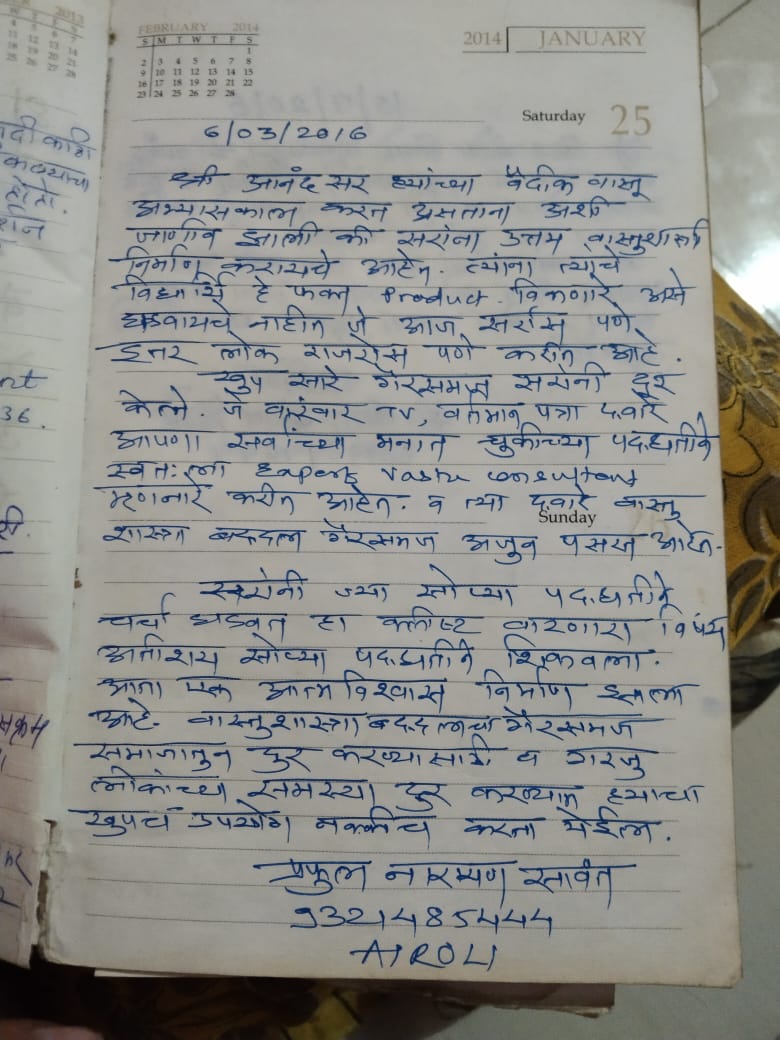 FEBRUARY 2014
S M T W T F S
1
2 3 4 5 6 7 8
9 10 11 12 13 14 15
16 17 18 19 20 21 22
23 24 25 26 27 28
2014 JANUARY
Saturday 25
6/03/2016
श्री आनंद सर ह्यांच्या वैदीक वास्तू
अभ्यासकाला करत असताना अशी
जाणीव झाली की सरांना उत्तम वास्तुशास्त्री
निर्माण करायचे आहेत. त्यांना त्याचे
विद्यार्थि हे फक्त product विकणारे असे
घडवायचे नाहीत जे आज सर्रास पणे
इतर लोक राजरोस पणे करीत आहे.
खुप सारे गैरसमज सरांनी दूर
केले. जे वारंवार TV, वर्तमान पत्रा द्वारे
आपणा सर्वांच्या मनात चुकीच्या पद्धतीने
स्वत:ला Expert Vastu consultant
म्हणनारे करीत आहेत. व त्या द्वारे वास्तू
Sunday 26
शास्त्रा बद्दल गैरसमज अजुन पसरत आहेत.
सरांनी ज्या सोप्या पद्धतीने
चर्चा घडवत हा क्लीष्ट वाटणारा विषय
अतिशय सोप्या पद्धतीने शिकवला.
आता एक आत्मविश्वास निर्माण झाला
आहे. वास्तुशास्त्राबद्दलचा गैरसमज
समाजातुन दुर करण्यासाठी व गरजु
लोकांच्या समस्या दुर करण्यात ह्याचा
खुपच उपयोग नक्कीच करता येईल.
प्रफुल नारायण सावंत
9321485444
AIROLI